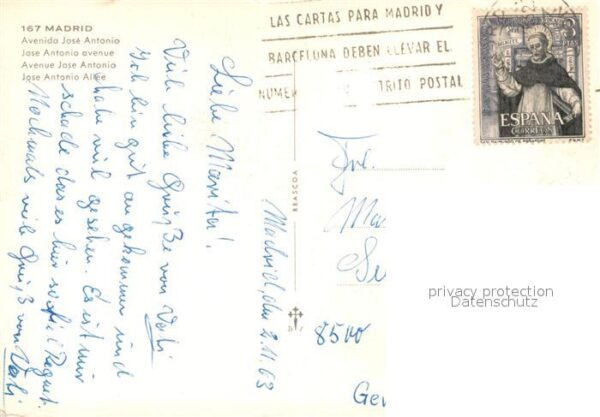 167 MADRID
Avenida José Antonio
Jose Antonio avenue
Avenue Jose Antonio
Jose Antonio Allee
LAS CARTAS PARA MADRID Y
BARCELONA DEBEN LLEVAR EL
NUMER TRITO POSTAL
3
PTAS
ESPAÑA
CORREOS
Madrid, den 2.11.63
Liebe Marita!
Viele liebe Grüße von Vati
Ich bin gut angekommen und
habe viel gesehen. Es ist mir
schade das es hier so viel Regnet.
Nochmals viele Grüße von Vati
BRASCOA
Frl.
Ma
Se
8500
Ger
privacy protection
Datenschutz